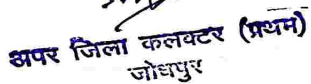 अपर जिला कलक्टर (प्रथम)
जोधपुर